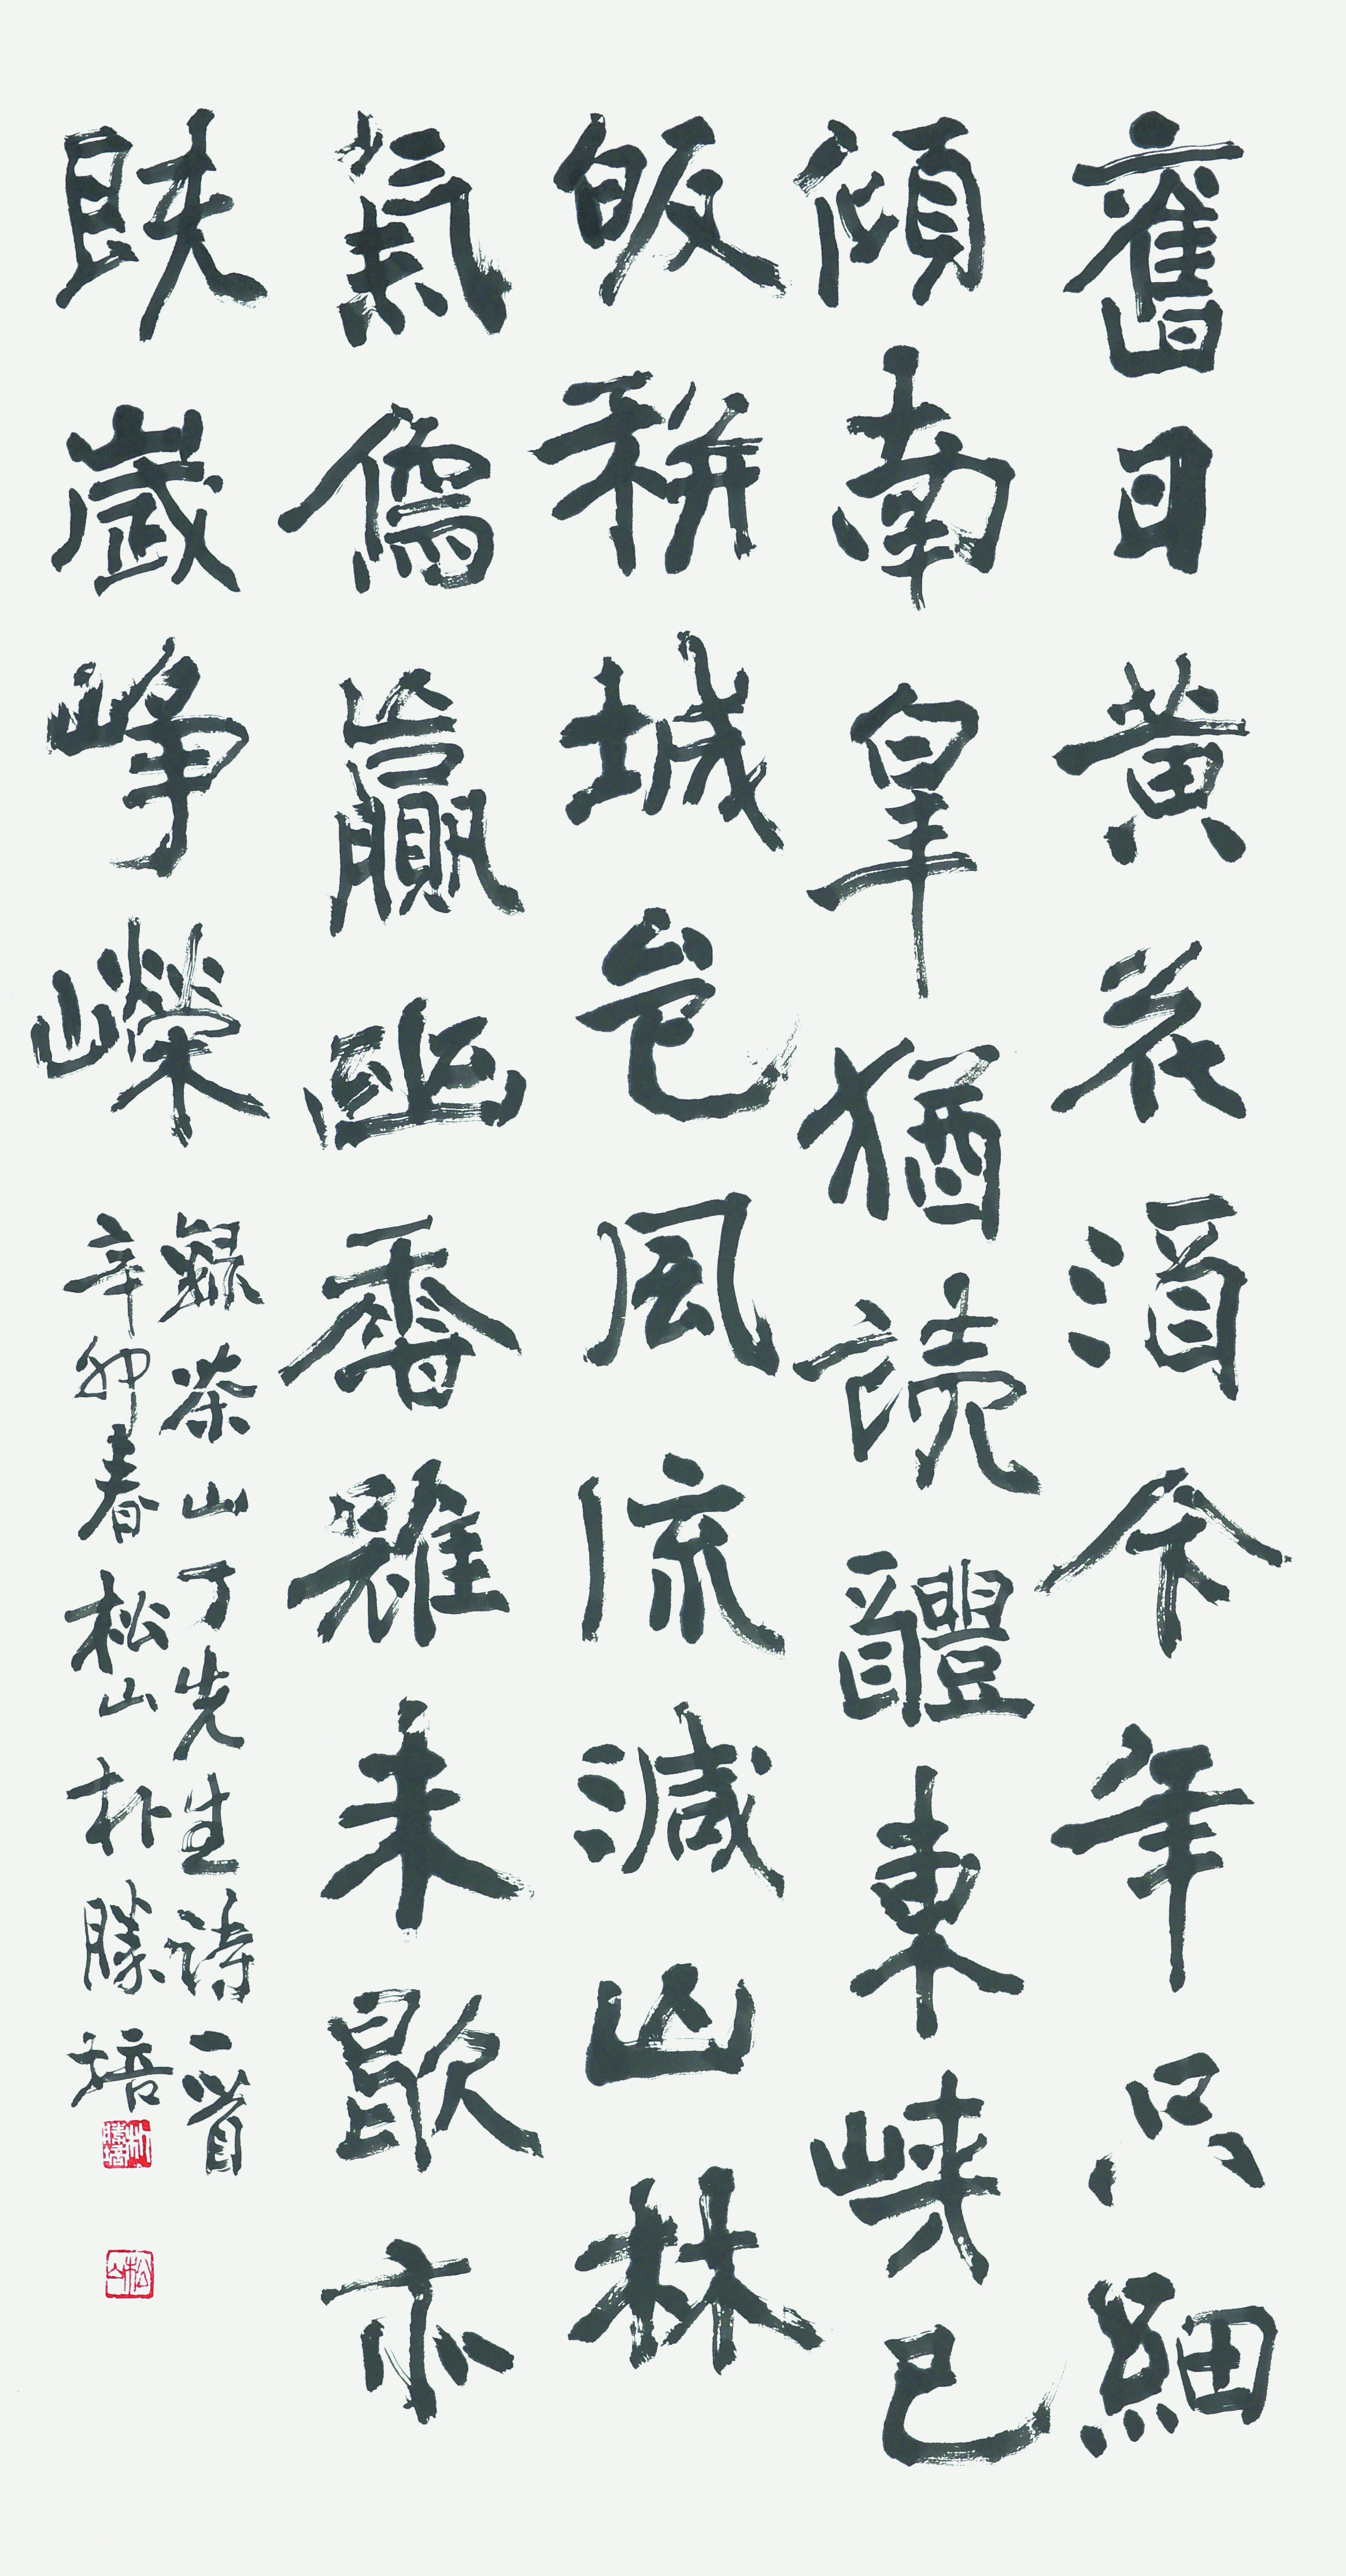 舊日黃花酒今年只細
傾南皐猶読醴東峽已
皈耕城邑風流減山林
氣像贏幽香雖未歇亦
歲崢嶸
錄茶山丁先生詩一首
辛卯春松山朴勝培
朴勝培
松山